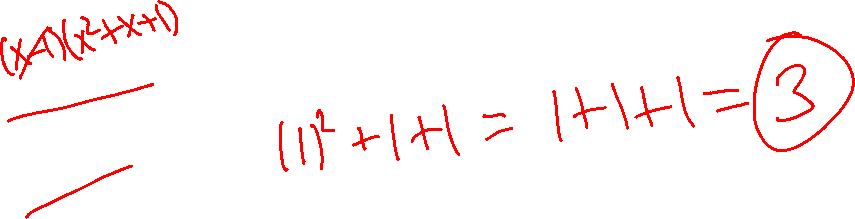 (x-1)(x²+x+1)
(1)²+1+1 = 1+1+1 = 3